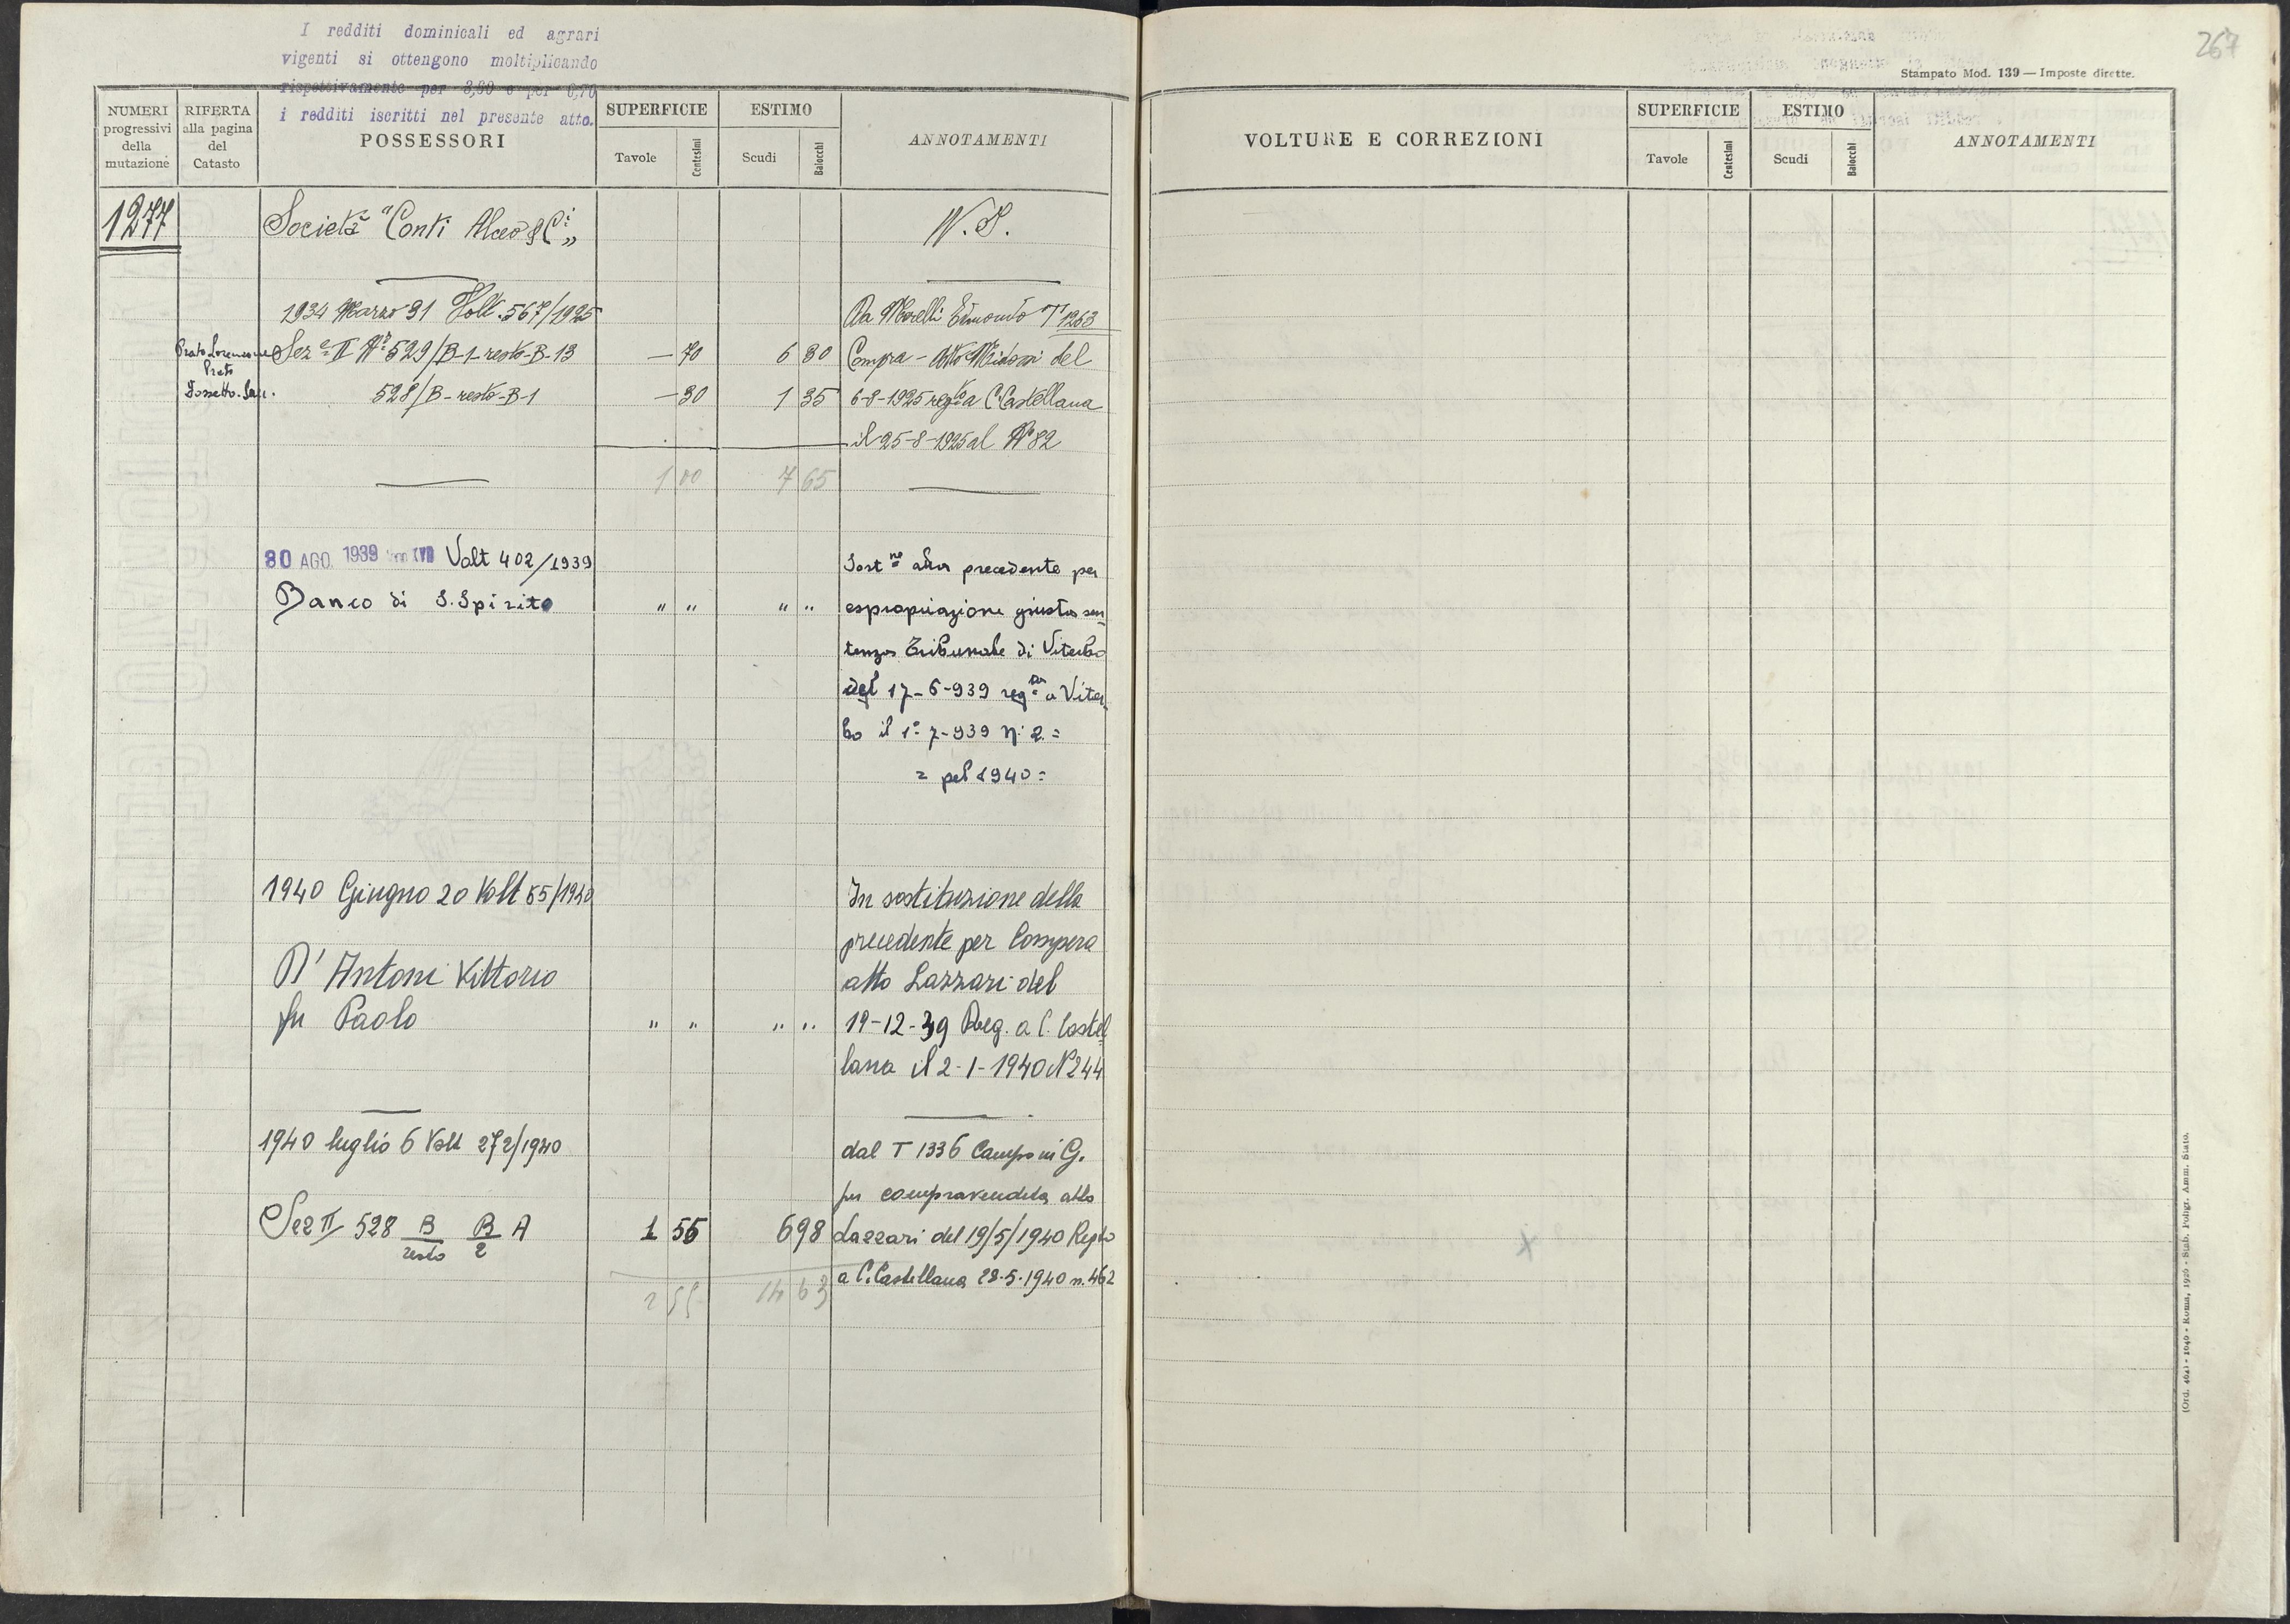 I redditi dominicali ed agrari
vigenti si ottengono moltiplicando
rispettivamente per 3,30 e per 0,70
i redditi iscritti nel presente atto.
NUMERI progressivi della mutazione
RIFERTA alla pagina del Catasto
POSSESSORI
SUPERFICIE
Tavole
Centesimi
ESTIMO
Scudi
Baiocchi
ANNOTAMENTI
1277
Società "Conti Alceo & C.i"
N. S.
1934 Marzo 31 Volt. 567/1925
Da Morelli Edmondo T 1263
Sez.e II N° 529/B-1-resto-B-13 — 70 6 30 Compra - Atto del
Prato
528/B-resto-B-1 — 30 1 35 6-8-1925 reg.to a C. Castellana
Fossetto
il 25-8-1925 al N° 82
1 00 7 65
30 AGO. 1939 Anno XVII Volt 402/1939
Sost.ne alla precedente per
Banco di S. Spirito " " " " espropriazione giusta sen
tenza Tribunale di Viterbo
del 17-6-939 reg.ta a Viter
bo il 1°-7-939 N. 2 =
= pel 1940 =
1940 Giugno 20 Volt 65/1940
In sostituzione della
precedente per Compera
D'Antoni Vittorio atto Lazzari del
fu Paolo " " " " 19-12-39 Reg. a C. Castel
lana il 2-1-1940 N 244
1940 luglio 6 Volt 272/1940
dal T 1336 Camponi G.
per compravendita atto
Sez II 528 B/resto B/2 A 1 55 6 98 Lazzari del 19/5/1940 Regto
a C. Castellana 28-5-1940 n. 462
2 55 14 63
267
Stampato Mod. 139 — Imposte dirette.
VOLTURE E CORREZIONI
SUPERFICIE
Tavole
Centesimi
ESTIMO
Scudi
Baiocchi
ANNOTAMENTI